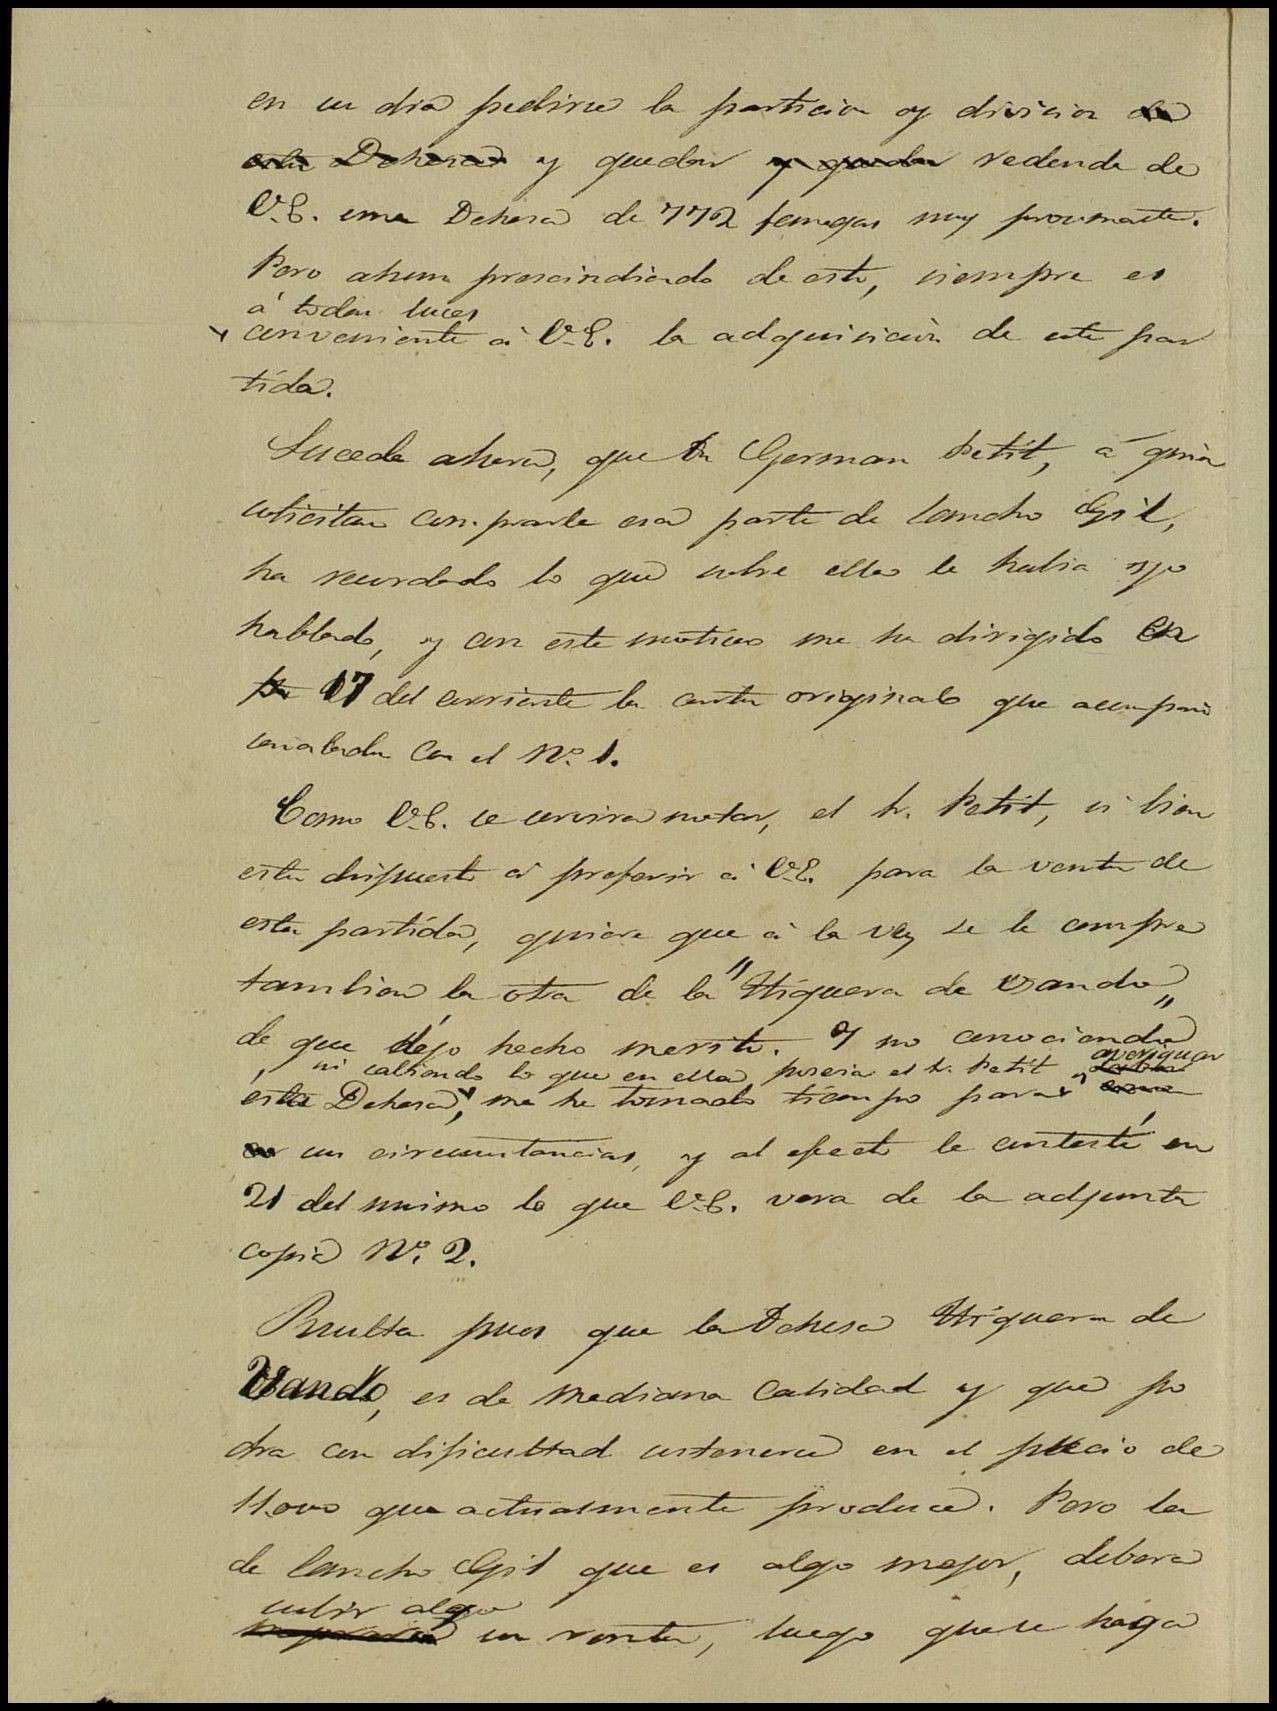 en un dia pedirse la particion y division de
esta Dehesa y quedar y quedar redonda de
V.E. una Dehesa de 772 fanegas muy
Pero ahun prescindiendo de esto, siempre es
á todas luces
conveniente á V.E. la adquisicion de esta par
tida.
Sucede ahora, que Dn German Petit, á quien
solicitan comprarle esa parte de Sancho Gil,
ha recordado lo que sobre ella le habia yo
hablado, y con este motivo me ha dirigido en
17 del corriente la carta original que acompaño
señalada con el Nº. 1.
Como V.E. se servira notar, el Sr. Petit, si bien
esta dispuesto á preferir á V.E. para la venta de
esta partida, quiere que á la vez se le compre
tambien la otra de la "Higuera de Vando"
de que déjo hecho merito. Y no conociendo
ni sabiendo lo que en ella poseia el Sr. Petit averiguar
esta Dehesa, me he tomado tiempo para
sus circunstancias, y al efecto le contesté en
21 del mismo lo que V.E. vera de la adjunta
copia Nº. 2.
Resulta pues que la Dehesa Higuera de
Vando, es de mediana calidad y que po
dra con dificultad sostenerse en el precio de
11.000 que actualmente produce. Pero la
de Sancho Gil que es algo mejor, debera
subir algo
su renta, luego que se haga